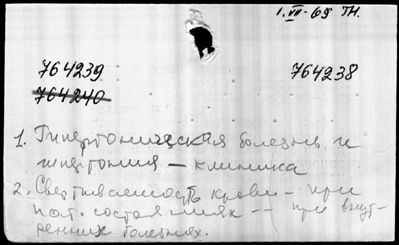 1.VII-69 тн.
764239 764238
764240
1. Гипертоническая болезнь и
гипертония — клиника
2. Свертываемость крови — при
пат. состояниях — при внут-
ренних болезнях.